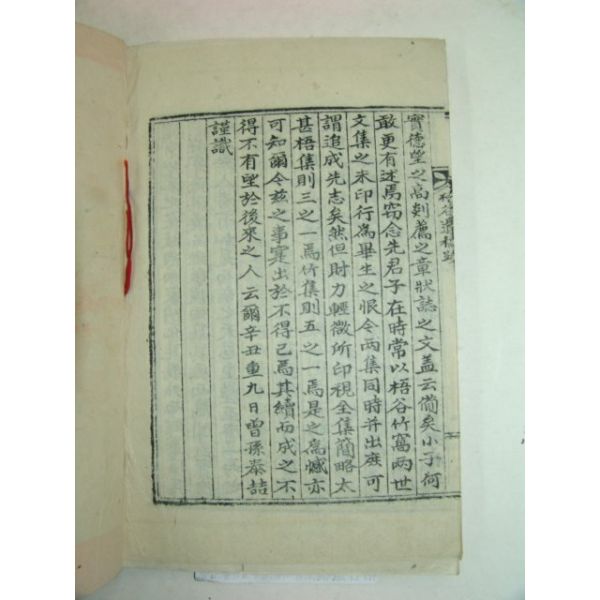 實德望之高剡薦之章狀誌之文盖云備矣小子何
敢更有述焉窃念先君子在時常以梧谷竹窩两世
文集之未印行為畢生之恨今两集同時并出庶可
謂追成先志矣然但財力輕微所印視全集簡略太
甚梧集則三之一焉竹集則五之一焉是之為憾亦
可知爾今玆之事寔出於不得已焉其續而成之不
得不有望於後來之人云爾辛丑重九日曾孫泰喆
謹識